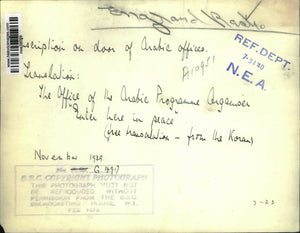 REF. DEPT.
7-3140
N.E.A.
Inscription on door of Arabic offices.
Translation:
The Office of the Arabic Programme Organiser
"Enter here in peace"
(free translation - from the Koran)
November 1938.
B.B.C. COPYRIGHT PHOTOGRAPH
THIS PHOTOGRAPH MUST NOT
BE REPRODUCED WITHOUT
PERMISSION FROM THE B.B.C.
BROADCASTING HOUSE, W.1.